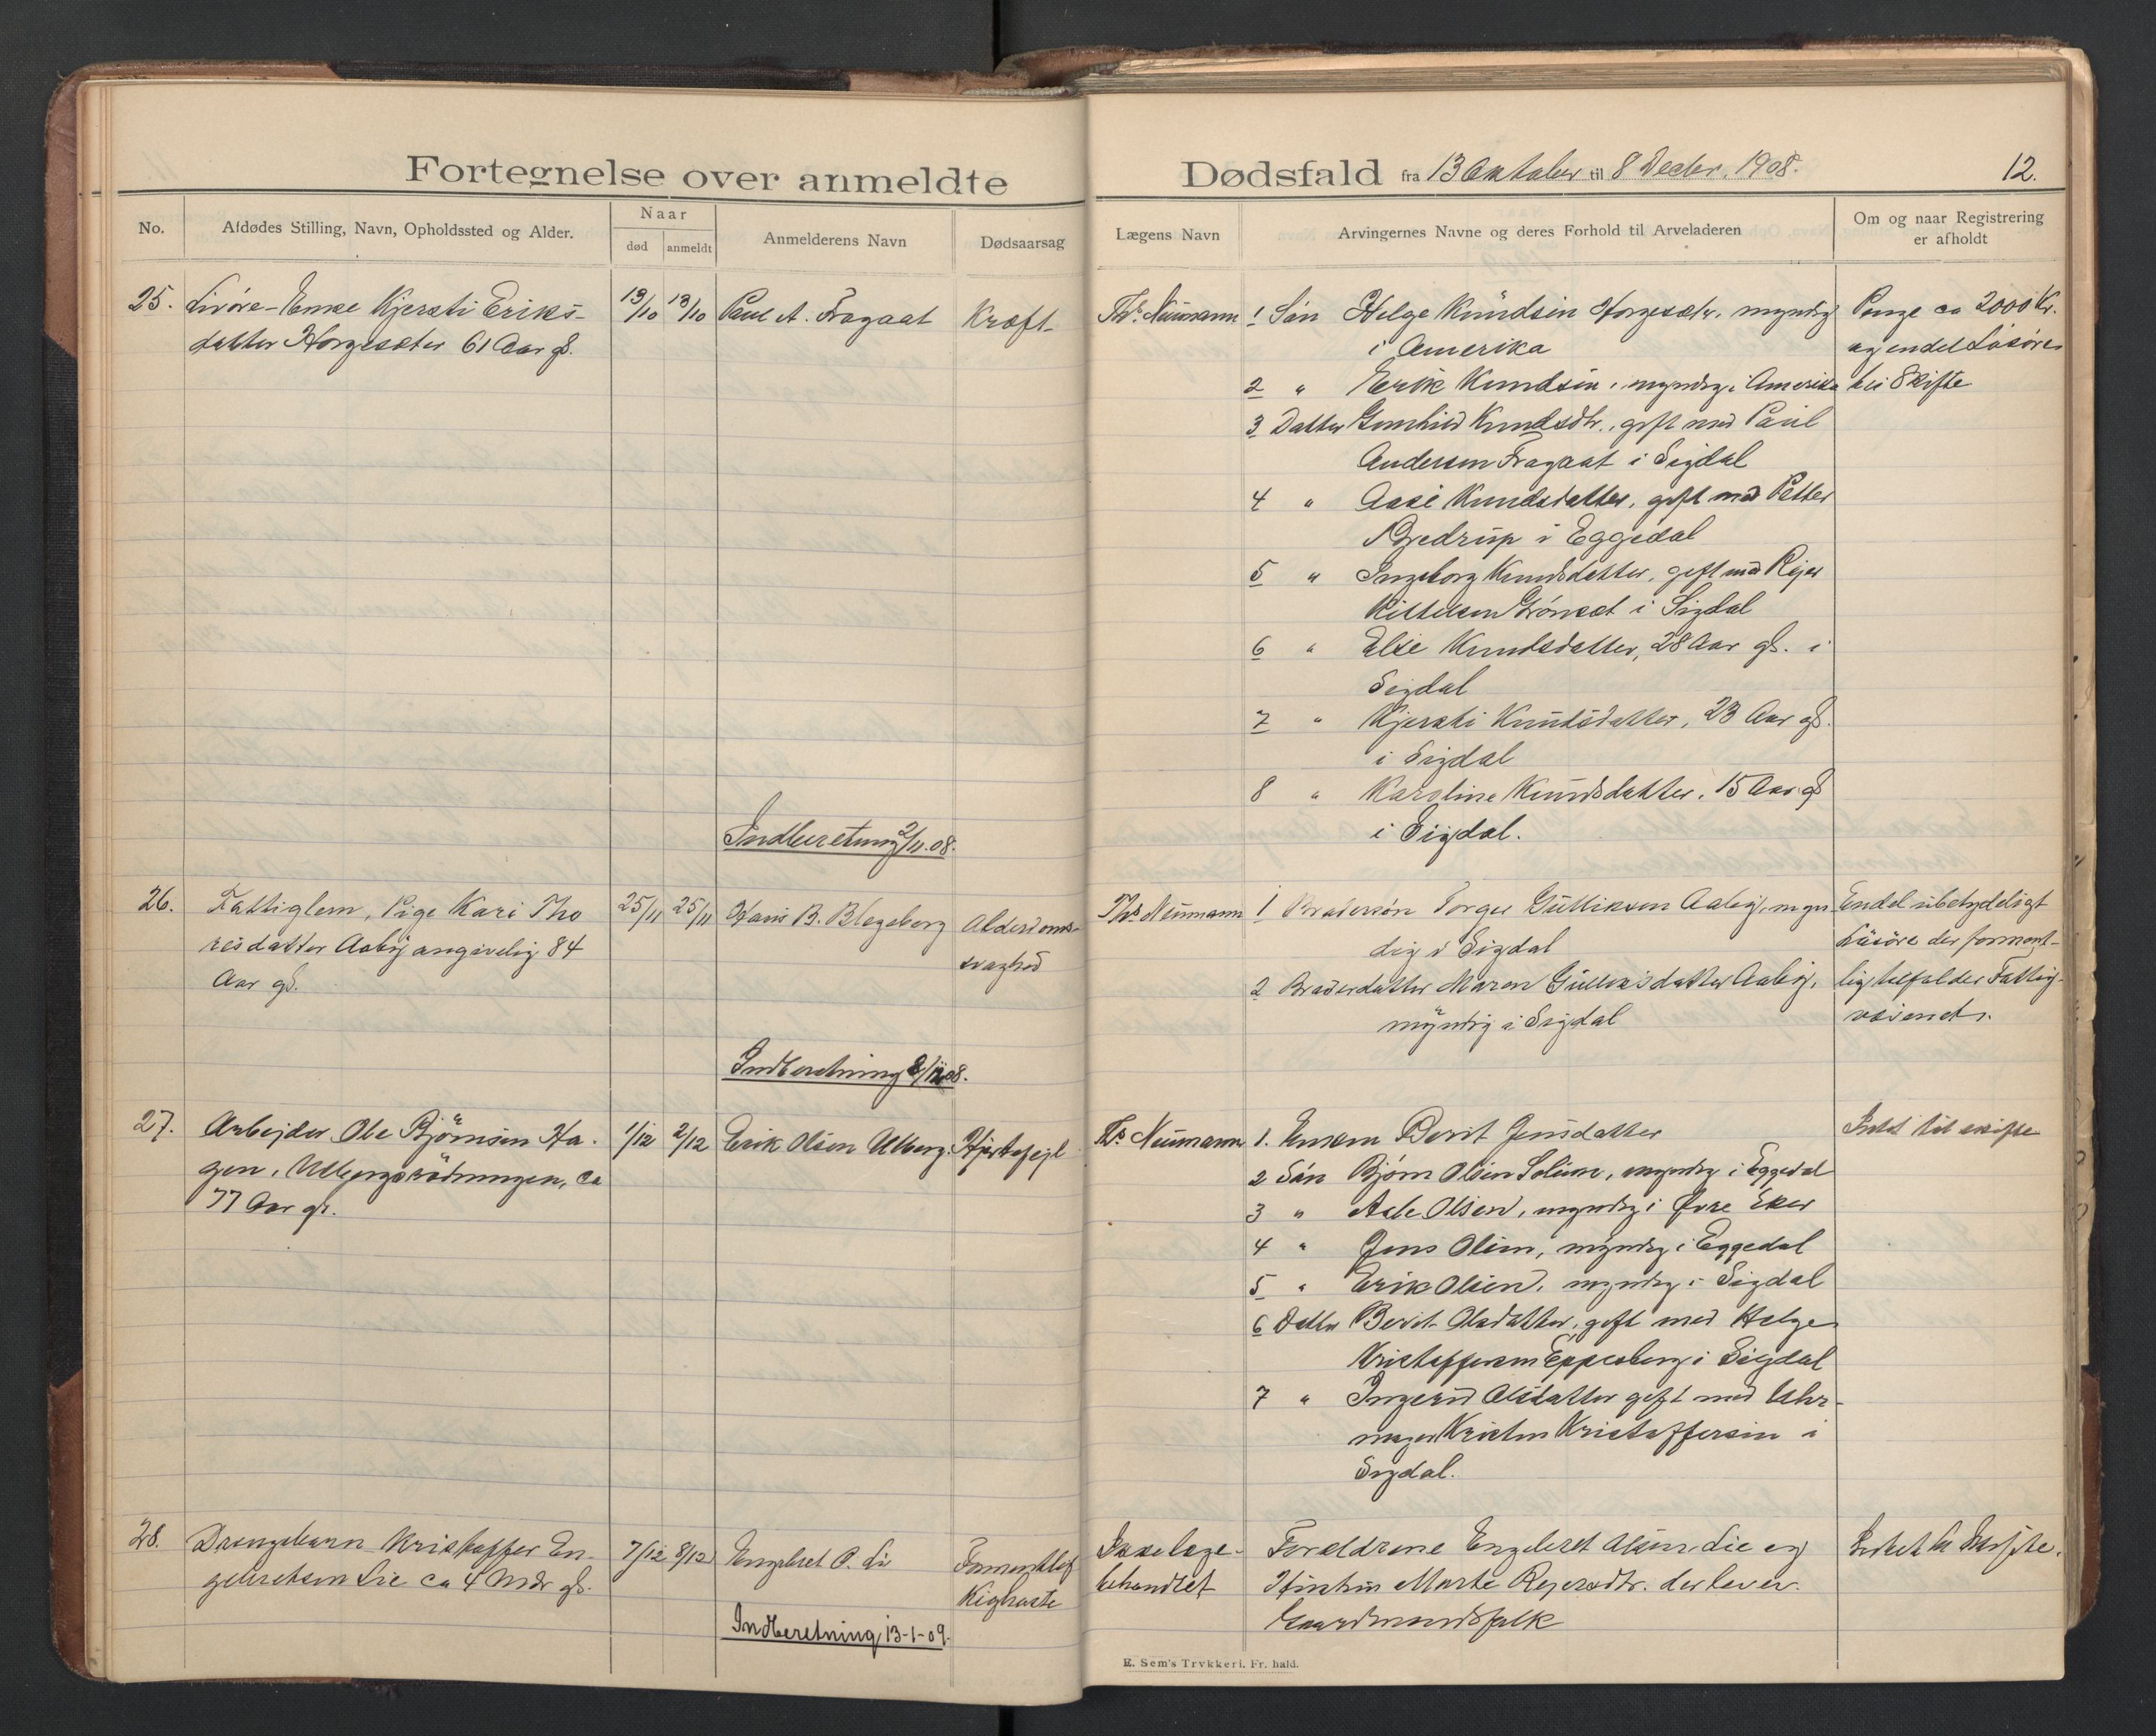 Fortegnelse over anmeldte
Dødsfald fra 13 Oktober til 8 Decbr. 1908.
12.
No.
Afdødes Stilling, Navn, Opholdssted og Alder.
Naar
død
anmeldt
Anmelderens Navn
Dødsaarsag
Lægens Navn
Arvingernes Navne og deres Forhold til Arveladeren
Om og naar Registrering
er afholdt
25.
Enke Kjersti Eriks-
datter Horgesæter 61 Aar gl.
13/10
13/10
Paul A. Fragaat
Kræft
Ths. Neumann
1 Søn Helge Knudsen Horgesæter, myndig
i Amerika
2 " Erik Knudsen, myndig i Amerika
3 Datter Gunhild Knudsdtr., gift med Paul
Andersen Fragaat i Sigdal
4 " Aase Knudsdatter, gift med Petter
Bredrup i Eggedal
5 " Ingeborg Knudsdatter, gift med Rejer
Kittelsen Grønset i Sigdal
6 " Else Knudsdatter, 28 Aar gl. i
Sigdal
7 " Kjersti Knudsdatter, 23 Aar gl.
i Sigdal
8 " Karoline Knudsdatter, 15 Aar gl
i Sigdal.
Penge ca 2000 Kr.
og endel Løsøre
til Skifte
Indberetning 2/11.08.
26.
Fattiglem, Pige Kari Tho
resdatter Aaby angivelig 84
Aar gl.
25/11
25/11
Hans B. Blegeberg
Alderdoms-
svaghed
Ths Neumann
1 Brodersøn Torger Gulliksen Aaby, myn
dig i Sigdal
2 Broderdatter Maren Gulliksdatter Aaby,
myndig i Sigdal
Endel ubetydeligt
Løsøre der forment-
lig tilfalder Fattig-
væsenet.
Indberetning 8/12.08.
27.
Arbejder Ole Bjørnsen Ha-
gen, Ulbergsrødningen, ca
77 Aar gl.
1/12
2/12
Erik Olsen Ulberg.
Hjertefejl
Ths Neumann
1. Enken Berit Jensdatter
2 Søn Bjørn Olsen Solum, myndig i Eggedal
3 " Asle Olsen, myndig i Øvre Eker
4 " Jens Olsen, myndig i Eggedal
5 " Erik Olsen, myndig i Sigdal
6 Datter Berit Olsdatter, gift med Helge
Kristoffersen Eppesberg i Sigdal
7 " Ingerid Olsdatter gift med Uhr-
mager Kristen Kristoffersen i
Sigdal.
Intet til skifte
28.
Drengebarn Kristoffer En-
gebretsen Lie ca 4 Mdr gl.
7/12
8/12
Engebret O. Li
Formentlig
Kighoste
Ikke læge-
behandlet
Forældrene Engebret Olsen Lie og
Hustru Marte Rejersdtr. der lever.
Gaardmandsfolk
Intet til Skifte.
Indberetning 13-1-09.
E. Sem's Trykkeri, Fr.hald.